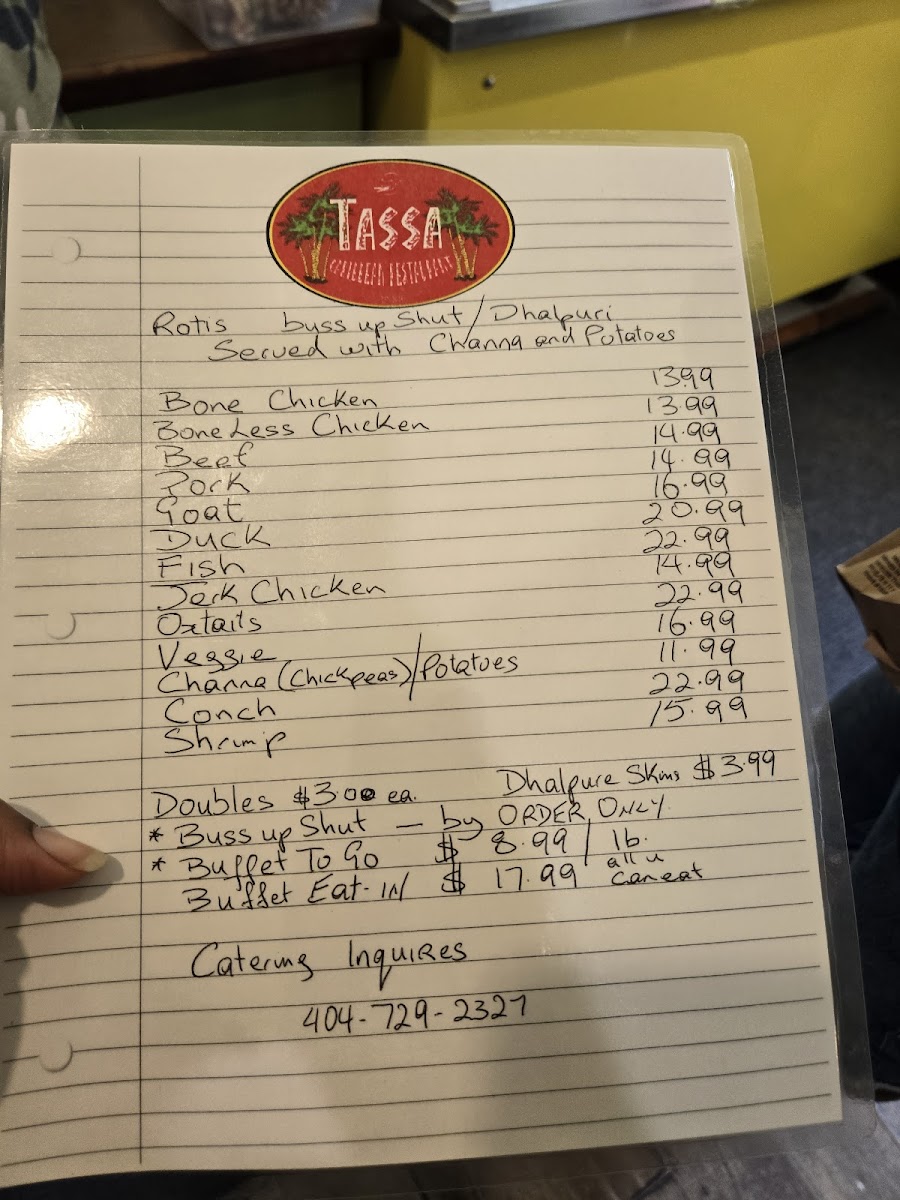 TASSA
CARIBBEAN RESTAURANT
Rotis buss up Shut / Dhalpuri
Served with Channa and Potatoes
Bone Chicken 13.99
BoneLess Chicken 13.99
Beef 14.99
Pork 14.99
Goat 16.99
Duck 20.99
Fish 22.99
Jerk Chicken 14.99
Oxtails 22.99
Veggie 16.99
Channa (Chickpeas)/Potatoes 11.99
Conch 22.99
Shrimp 15.99
Doubles $3.00 ea. Dhalpure Skins $3.99
* Buss up Shut - by ORDER ONLY.
* Buffet To Go $ 8.99 / lb.
Buffet Eat-IN $ 17.99 all u can eat
Catering Inquires
404-729-2327